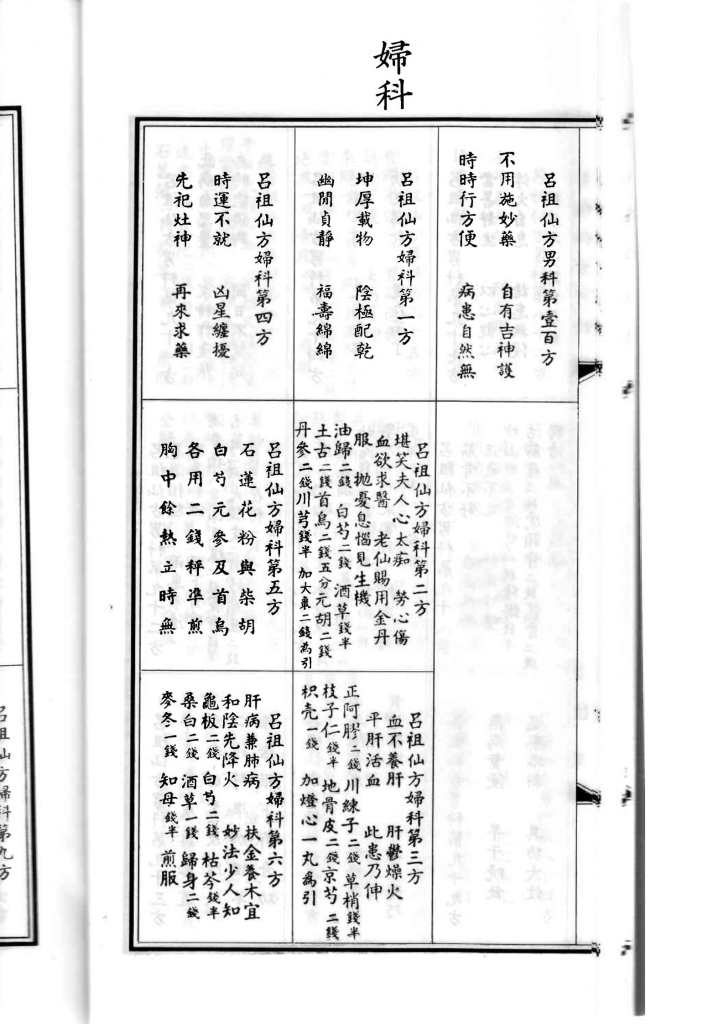 婦科
呂祖仙方男科第壹百方
不用施妙藥　自有吉神護
時時行方便　病患自然無
呂祖仙方婦科第一方
坤厚載物　陰極配乾
幽閒貞靜　福壽綿綿
呂祖仙方婦科第二方
堪笑夫人心太痴　勞心傷
血欲求醫　老仙賜用金丹
服　拋憂息惱見生機
油歸二錢　白芍二錢　酒草錢半
土古二錢首烏二錢五分元胡二錢
丹參二錢川芎錢半　加大棗二錢為引
呂祖仙方婦科第三方
血不養肝　肝鬱燥火
平肝活血　此患乃伸
正阿膠二錢川練子二錢　草梢錢半
枝子仁錢半　地骨皮二錢京芍二錢
枳壳一錢　加燈心一丸為引
呂祖仙方婦科第四方
時運不就　凶星纏擾
先祀灶神　再來求藥
呂祖仙方婦科第五方
石蓮花粉與柴胡
白芍元參及首烏
各用二錢秤準煎
胸中餘熱立時無
呂祖仙方婦科第六方
肝病兼肺病　扶金養木宜
和陰先降火　妙法少人知
龜板二錢　白芍二錢　枯芩錢半
桑白二錢　酒草一錢　歸身二錢
麥冬一錢　知母錢半　煎服
呂祖仙方婦科第九方